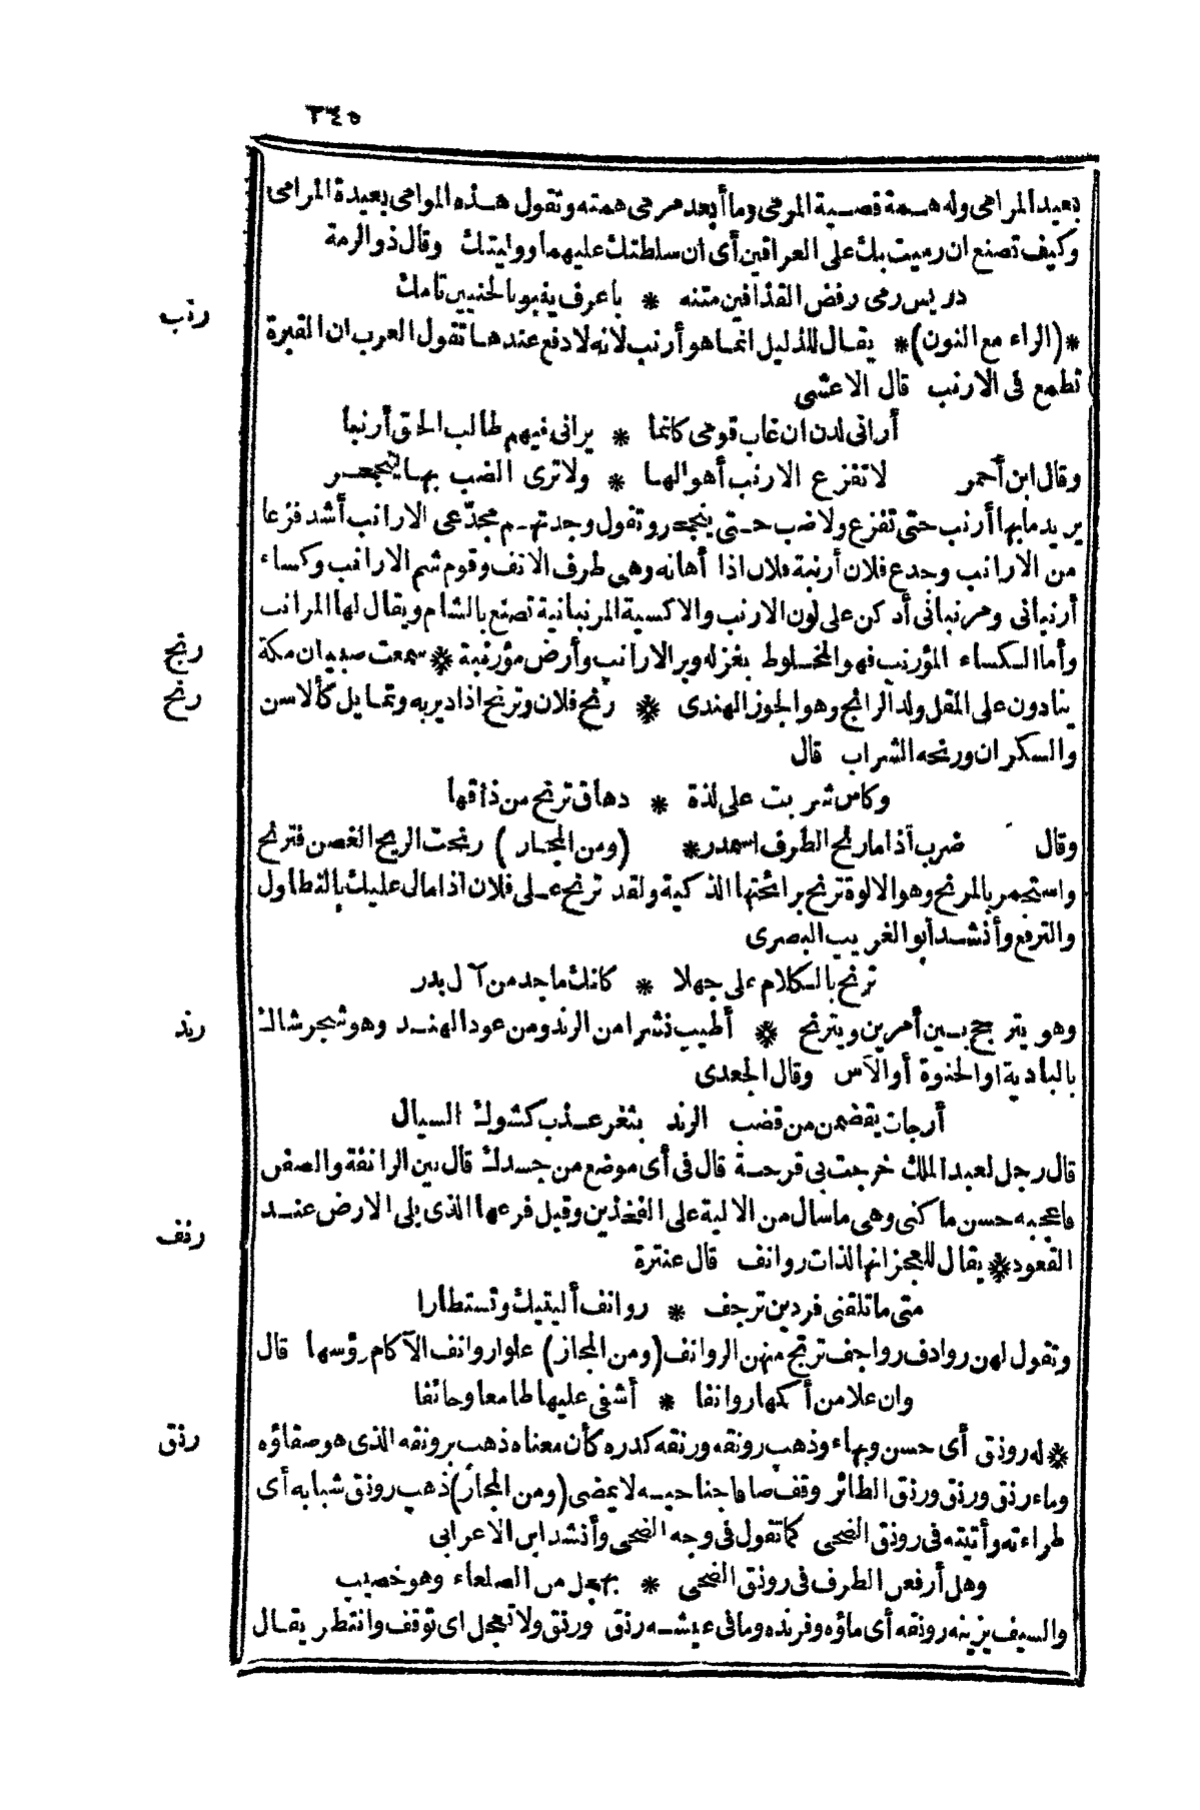 ٣٤٥
بعيد المرامى وله همة قصية المرمى وما أبعد مرمى همته وتقول هذه الموامى بعيدة المرامى
وكيف تصنع ان رميت بك على العراقين أى ان سلطتك عليهما ووليتك وقال ذو الرمة
رمى رفض القذافين متنه * باعرف ينبو بالحنيين تامك
رنب
*(الراء مع النون)* يقال للذليل انما هو أرنب لانه لا دفع عندها تقول العرب ان القبرة
تطمع فى الارنب قال الاعشى
أرانى لدن ان غاب قومى كانما * يرانى فيهم طالب الحق أرنبا
وقال ابن أحمر لا تفزع الارنب أهوالها * ولا ترى الضب بها ينجحر
يريد ما بها أرنب حتى تفزع ولا ضب حتى ينجحر وتقول وجدتهم مجدّعى الارانب أشد فزعا
من الارانب وجدع فلان أرنبة فلان اذا أهانه وهى طرف الانف وقوم شم الارانب وكساء
أرنبانى ومرنبانى أدكن على لون الارنب والاكسية المرنبانية تصنع بالشام ويقال لها المرانب
وأما الكساء المؤرنب فهو المخلوط بغزله وبر الارانب وأرض مؤرنبة * سمعت صبيان مكة
رنج
ينادون على المقل ولد الرانج وهو الجوز الهندى * رنح فلان وترنح اذا دير به وتمايل كالاسن
رنح
والسكران ورنحه الشراب قال
وكاس شربت على لذة * دهاق ترنح من ذاقها
وقال ضرب اذا ما رنح الطرف اسمدر* (ومن المجاز) رنحت الريح الغصن فترنح
واستجمر بالمرنح وهو الالوة ترنح برائحتها الذكية ولقد ترنح على فلان اذا مال عليك بالتطاول
والترفع وأنشد أبو الغريب البصرى
ترنح بالكلام على جهلا * كانك ماجد من آل بدر
وهو يترجح بين أمرين ويترنح * أطيب نشرا من الرند ومن عود الهند وهو شجر شاك
رند
بالبادية او الحنوة أو الآس وقال الجعدى
أرجات يقضمن من قضب الرند بثغر عذب كشوك السيال
قال رجل لعبد الملك خرجت بى قرحة قال فى أى موضع من جسدك قال بين الرانفة والصفن
فاعجبه حسن ما كنى وهى ما سال من الالية على الفخذين وقيل فرعها الذى يلى الارض عند
رنف
القعود * يقال للعجز انها لذات روانف قال عنترة
متى ما تلقنى فردين ترجف * روانف أليتيك وتستطارا
وتقول لهن روادف رواجف ترتج منهن الروانف (ومن المجاز) علوا روانف الآكام رؤسها قال
وان علا من أكمها روانفا * أشفى عليها طامعا وخائفا
* له رونق أى حسن وبهاء وذهب رونقه ورنقه كدره كأن معناه ذهب برونقه الذى هو صفاؤه
رنق
وماء رنق ورنق ورنق الطائر وقف صافا جناحيه لا يمضى (ومن المجاز) ذهب رونق شبابه أى
طراءته وأتيته فى رونق الضحى كما تقول فى وجه الضحى وأنشد ابن الاعرابى
وهل أرفعن الطرف فى رونق الضحى * بهجل من الصلعاء وهو خصيب
والسيف يزينه رونقه أى ماؤه وفرنده وما فى عيشه رنق ورنق ولا تعجل اى توقف وانتظر يقال